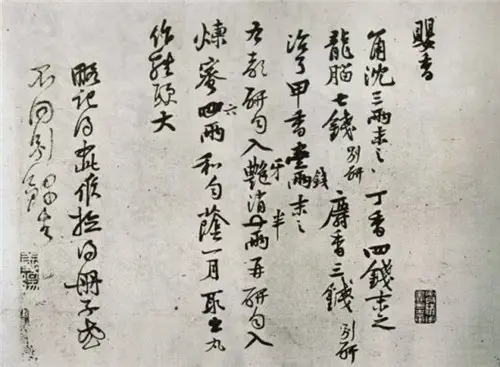 嬰香
角沈三兩末之 丁香四錢末之
龍腦七錢別研 麝香三錢別研
治了甲香壹兩錢末之
右都研勻入牙消半兩再研勻入
煉蜜六兩和勻蔭一月取出丸
作雞頭大
略記得此候檢得冊子或
不同別錄去